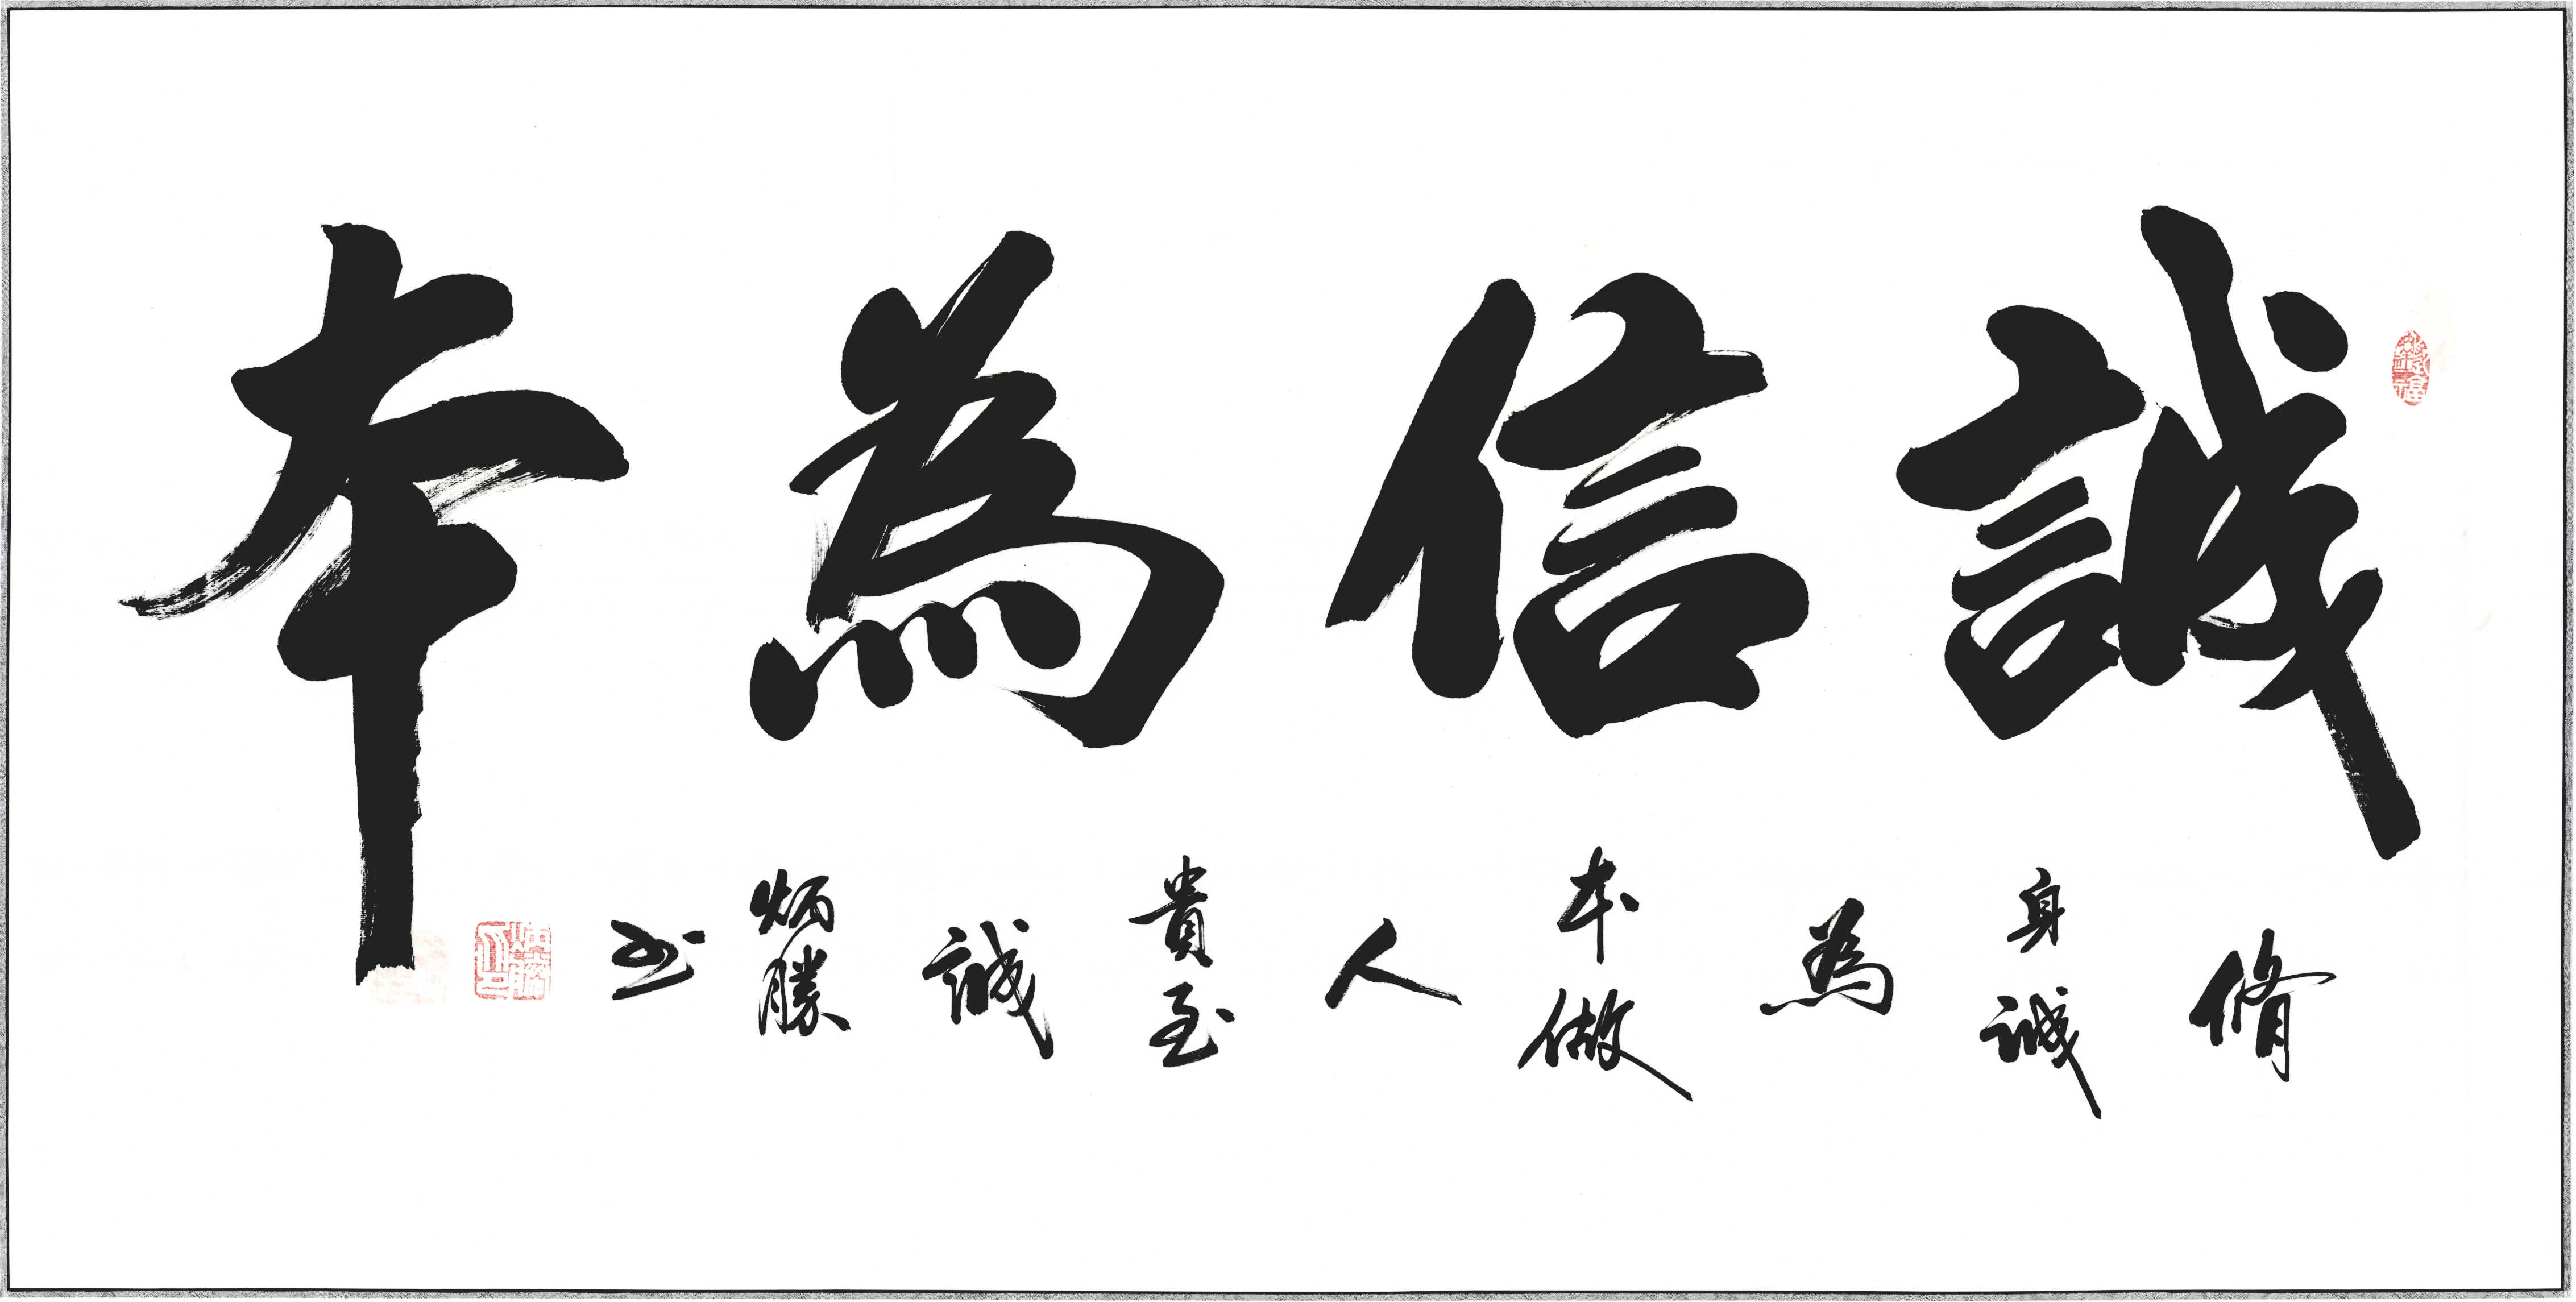 誠信為本
脩身誠為本做人貴至誠
炳勝书